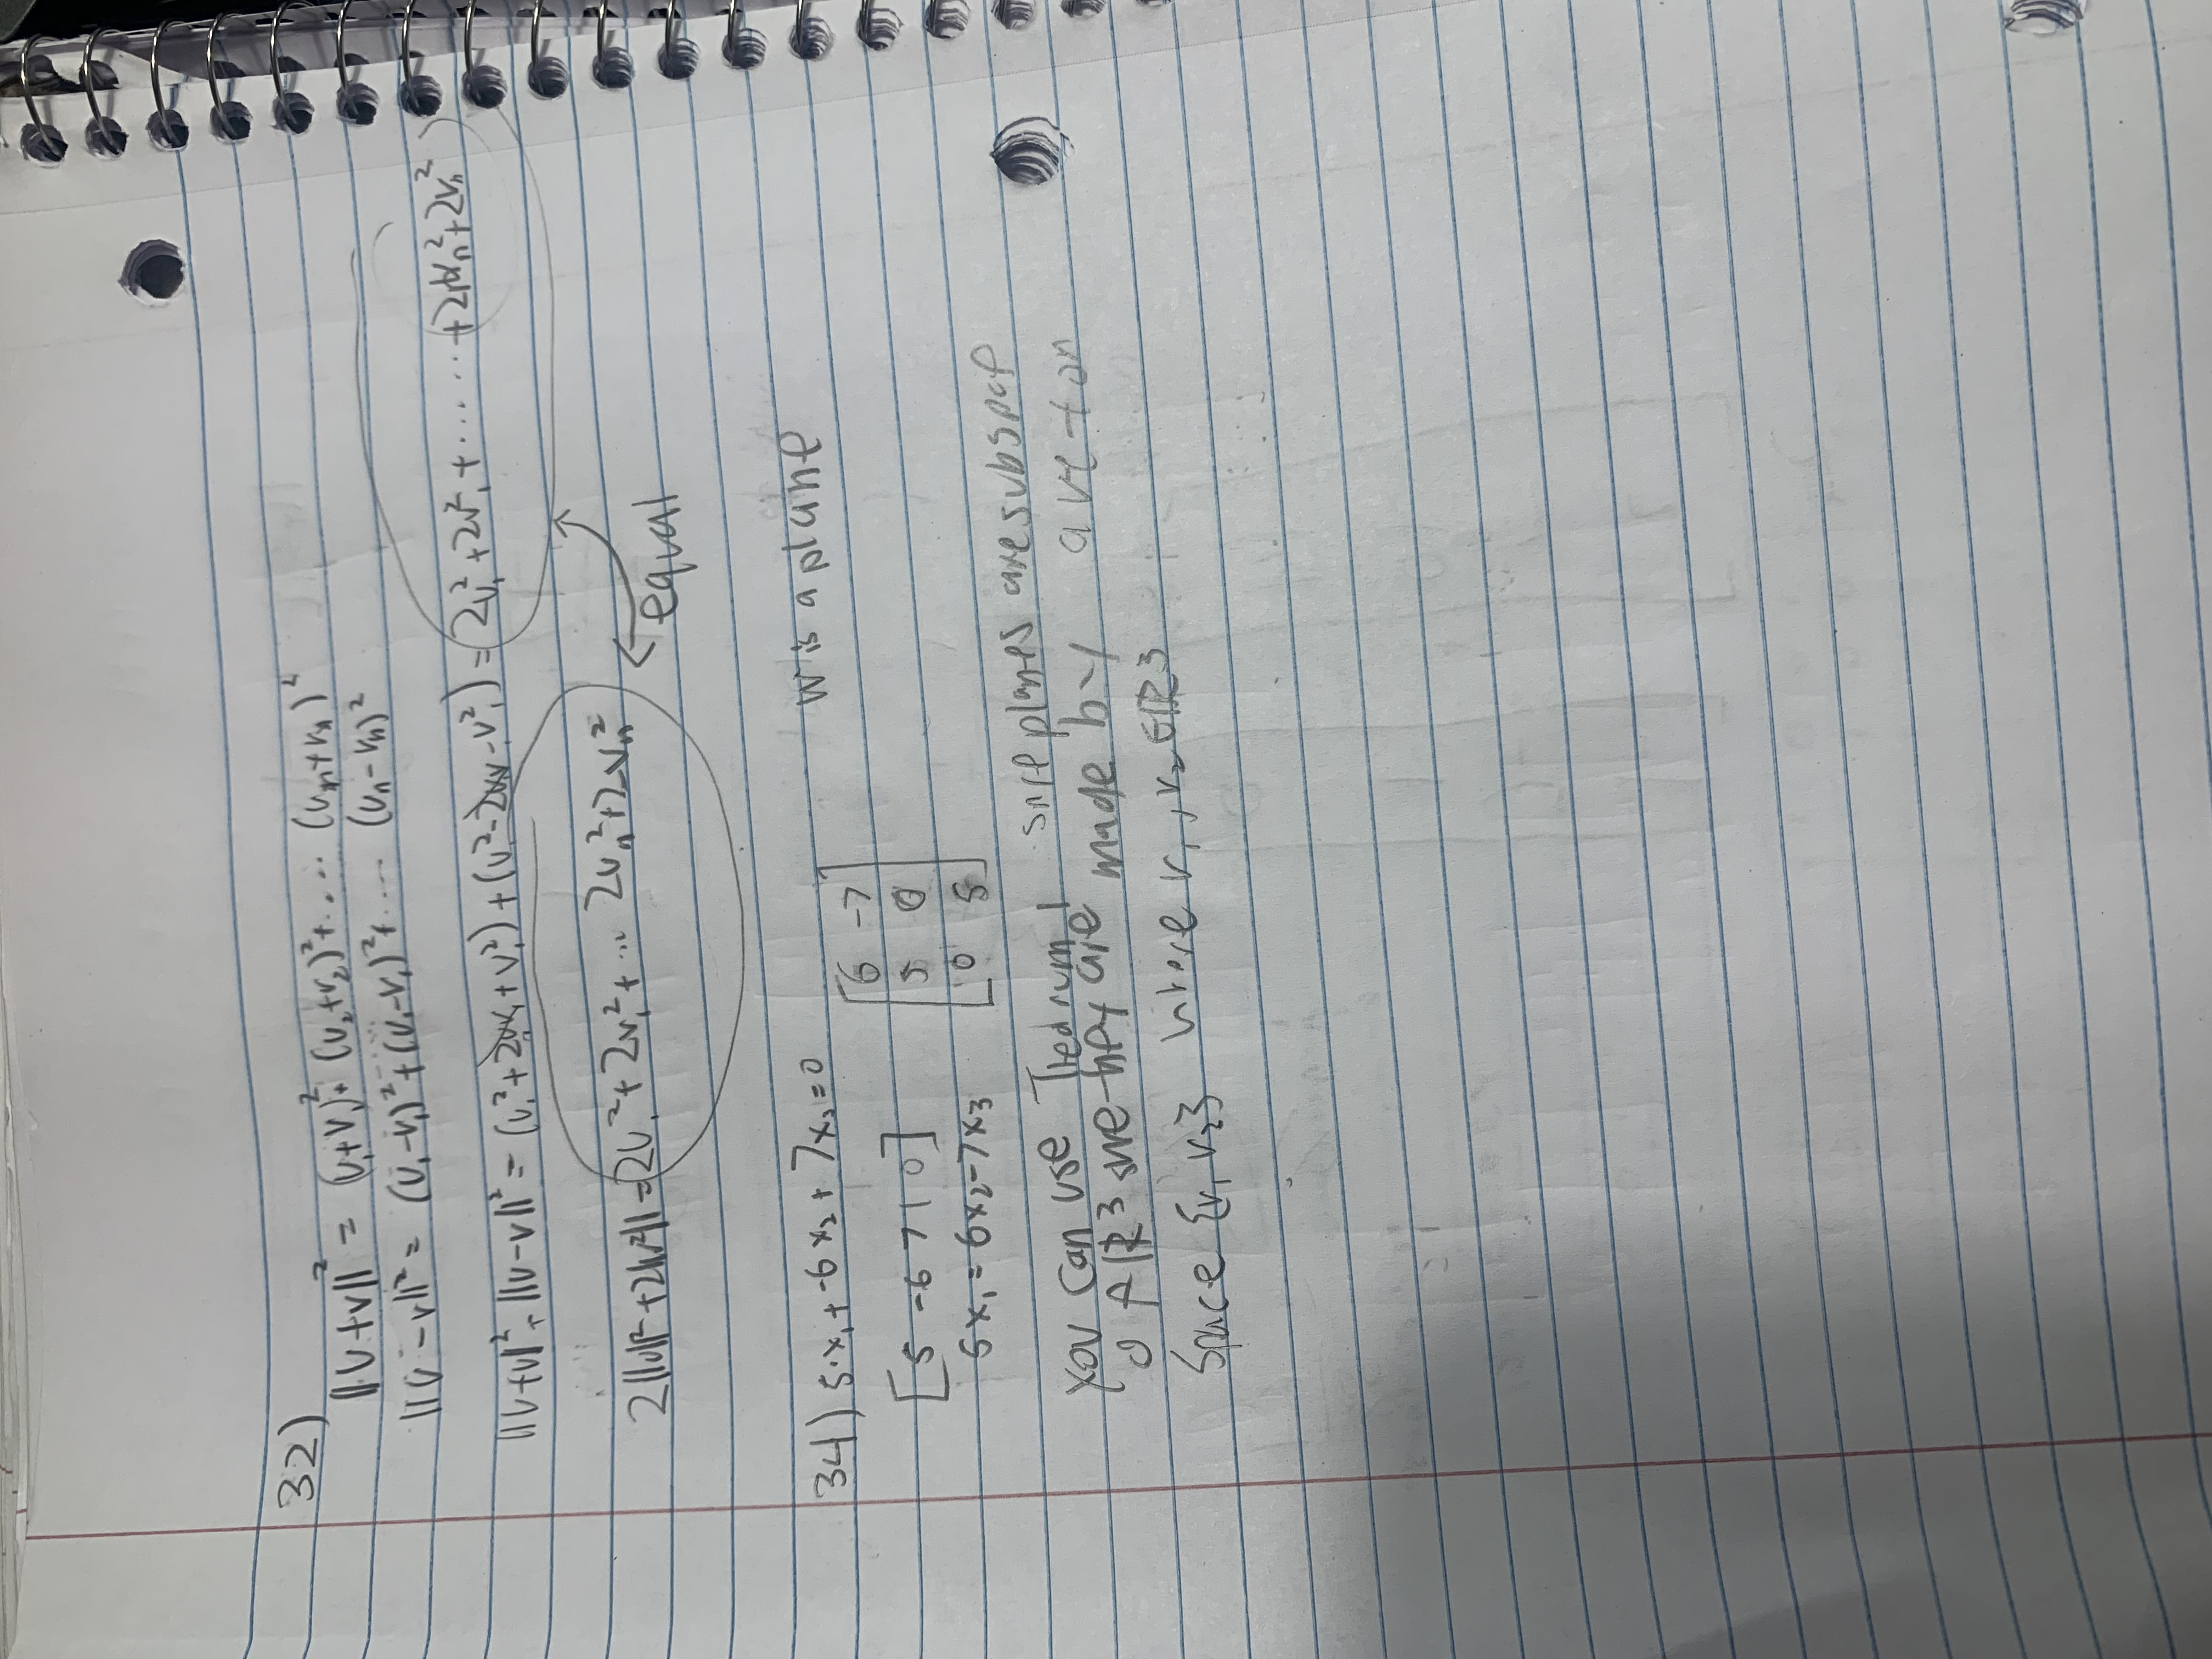 32)
||U+v||² = (u₁+v₁)²+ (u₂+v₂)²+.... (uₙ+vₙ)²
||U-v||² = (U₁-v₁)²+(U₁-v₁)²+.... (Uₙ-vₙ)²
||U+v||²+||U-v||² = (u₁²+2u₁v₁+v₁²)+(u₁²-2uv-v₁²) = 2u₁²+2v₁²+......+2uₙ²+2vₙ²
2||u||²+2||v²|| = 2u₁²+2v₁²+... 2uₙ²+2vₙ²
equal
34) 5·x₁+-6x₂+7x₃=0
W is a plane
[5 -6 7 | 0]
5x₁=6x₂-7x₃
6 -7
5 0
0 5
You can use Theorum 1 since planes are subspace
of ℝ³ since they are made by a vector
Space {v₁ v₂} where v₁, v₂ ∈ ℝ3